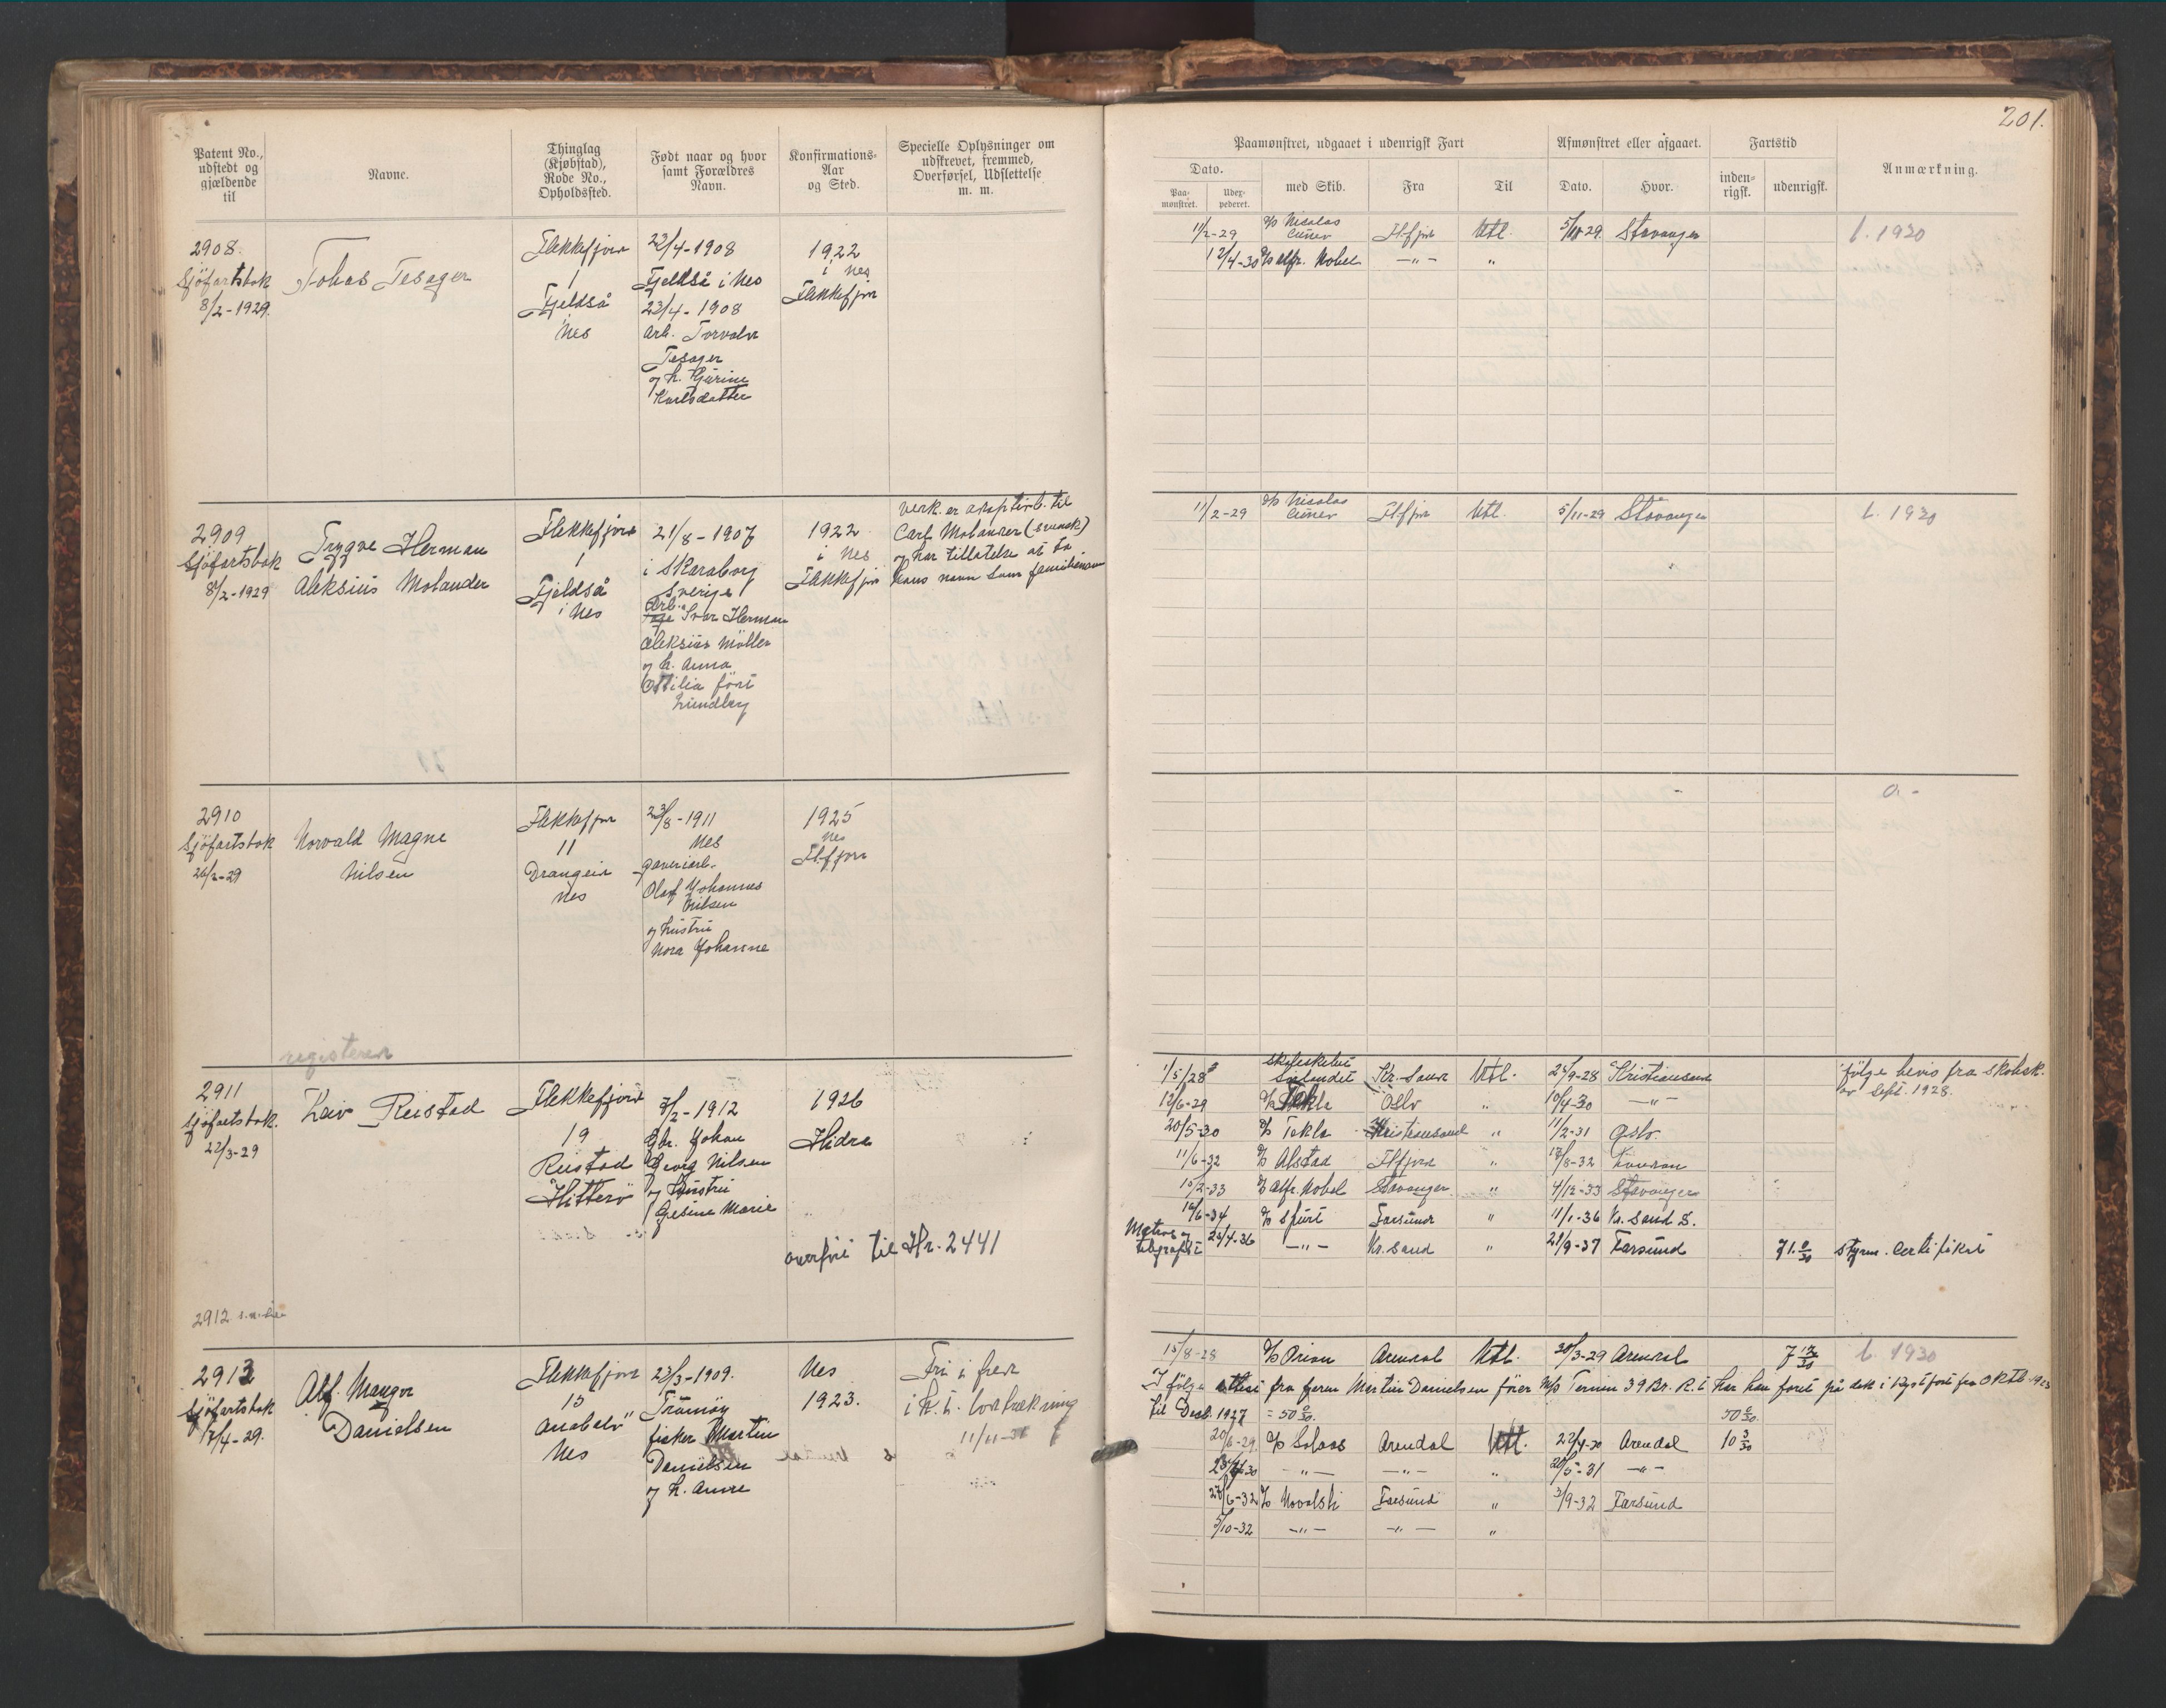 201.
Patent No.,
udstedt og
gjældende
til
Navne.
Thinglag
(Kjøbstad),
Rode No.,
Opholdssted.
Født naar og hvor
samt Forældres
Navn.
Konfirmations-
Aar
og Sted.
Specielle Oplysninger om
udskrevet, fremmed,
Overførsel, Udslettelse
m. m.
Paamønstret, udgaaet i udenrigsk Fart
Dato.
Paa-
mønstret.
Udex-
pederet.
med Skib.
Fra
Til
Afmønstret eller afgaaet.
Dato.
Hvor.
Fartstid
inden-
rigsk.
udenrigsk.
Anmærkning.
2908.
Sjöfartsbok
8/2-1929.
Tobas Tesager
Flekkefjord
1
Fjeldså
i
Nes
23/4-1908
Fjeldså i Nes
23/4-1908
Arb. Torvald
Tesager
og h. Gurine
Karlsdatter
1922
i Nes
Flekkefjor
11/2-29 D/s Nicolas Cuneo Fl.fjor Utl. 5/11-29. Stavanger b. 1930
12/4-30 D/s Alfr. Nobel —"— "
2909
Sjöfartsbok
8/2-1929
Trygve Herman
Aleksius Molander
Flekkefjord
1
Fjeldså
i Nes
21/8-1907
i Skaraborg
Sverige
Arb. Ivar Herman
Aleksius Möller
og h. Anna
Ottilia födt
Lundberg
1922
i Nes
Flekkefjor
Verk. er adoptivb. til
Carl Molander (svensk)
og har tillatelse at ta
hans navn som familienavn
11/2-29 D/s Nicolas Cuneo Fl.fjor Utl. 5/11-29 Stavanger b. 1930
2910
Sjöfartsbok
26/2-29
Norvald Magne
Nilsen
Flekkefjor
11
Drangeid
Nes
23/8-1911
Nes
garveriarb.
Olaf Johannes
Nilsen
og hustru
Nora Johanne
1925
Nes
Fl.fjor
registeret
2911
Sjöfartsbok.
22/3-29
Leiv Reistad
Flekkefjord
19
Reistad
Hitterö
7/2-1912
Gbr. Johan
Georg Nilsen
og Hustru
Gesine Marie
1926
Hidra
overfört til Hr. 2441
1/5/28 skoleskibet Sörlandet Kr.sand Utl. 25/9-28 Kristiansand ifølge bevis fra skolesk. av Sept. 1928.
12/6-29 D/s Tekla Oslo " 10/4-30 —"—
20/5-30 D/s Tekla Kristiansand " 11/2-31 Oslo.
11/6-32 D/s Alstad Fl.fjord " 18/8-32 London
15/2-33 D/s Alfr. Nobel Stavanger " 4/12-33 Stavanger
16/6-34 D/s Spurt Farsund " 11/1-36 Kr.sand S.
Matros og telegrafist 23/4-36 —"— Kr.sand " 21/9-37 Farsund 71. 0/30 styrm. certifikat
2912
2913
Sjöfartsbok
17/4-29.
Alf Maugor
Danielsen
Flekkefjord
13
Anabelö
Nes
23/3-1909.
Tromöy
fisker Martin
Danielsen
og h. Anne
Nes
1923.
Fri i fred
i h. t. lodtrekning
11/11-31
15/8-28 D/s Orion Arendal Utl. 30/3-29 Arendal b. 1930
I følge attest fra Martin Danielsen förer M/s Ternen 39 Br. R.t har han faret på dek i kystfart fra Oktb. 1923
til Desb. 1927 = 50 0/30. 50 0/30
20/6-29. D/s Solaas Arendal Utl. 22/4-30 Arendal 10 3/30
—"— —"— " 20/5-31 —"—
27/6-32 Farsund " 3/9-32 Farsund
5/10-32 —"— —"— "